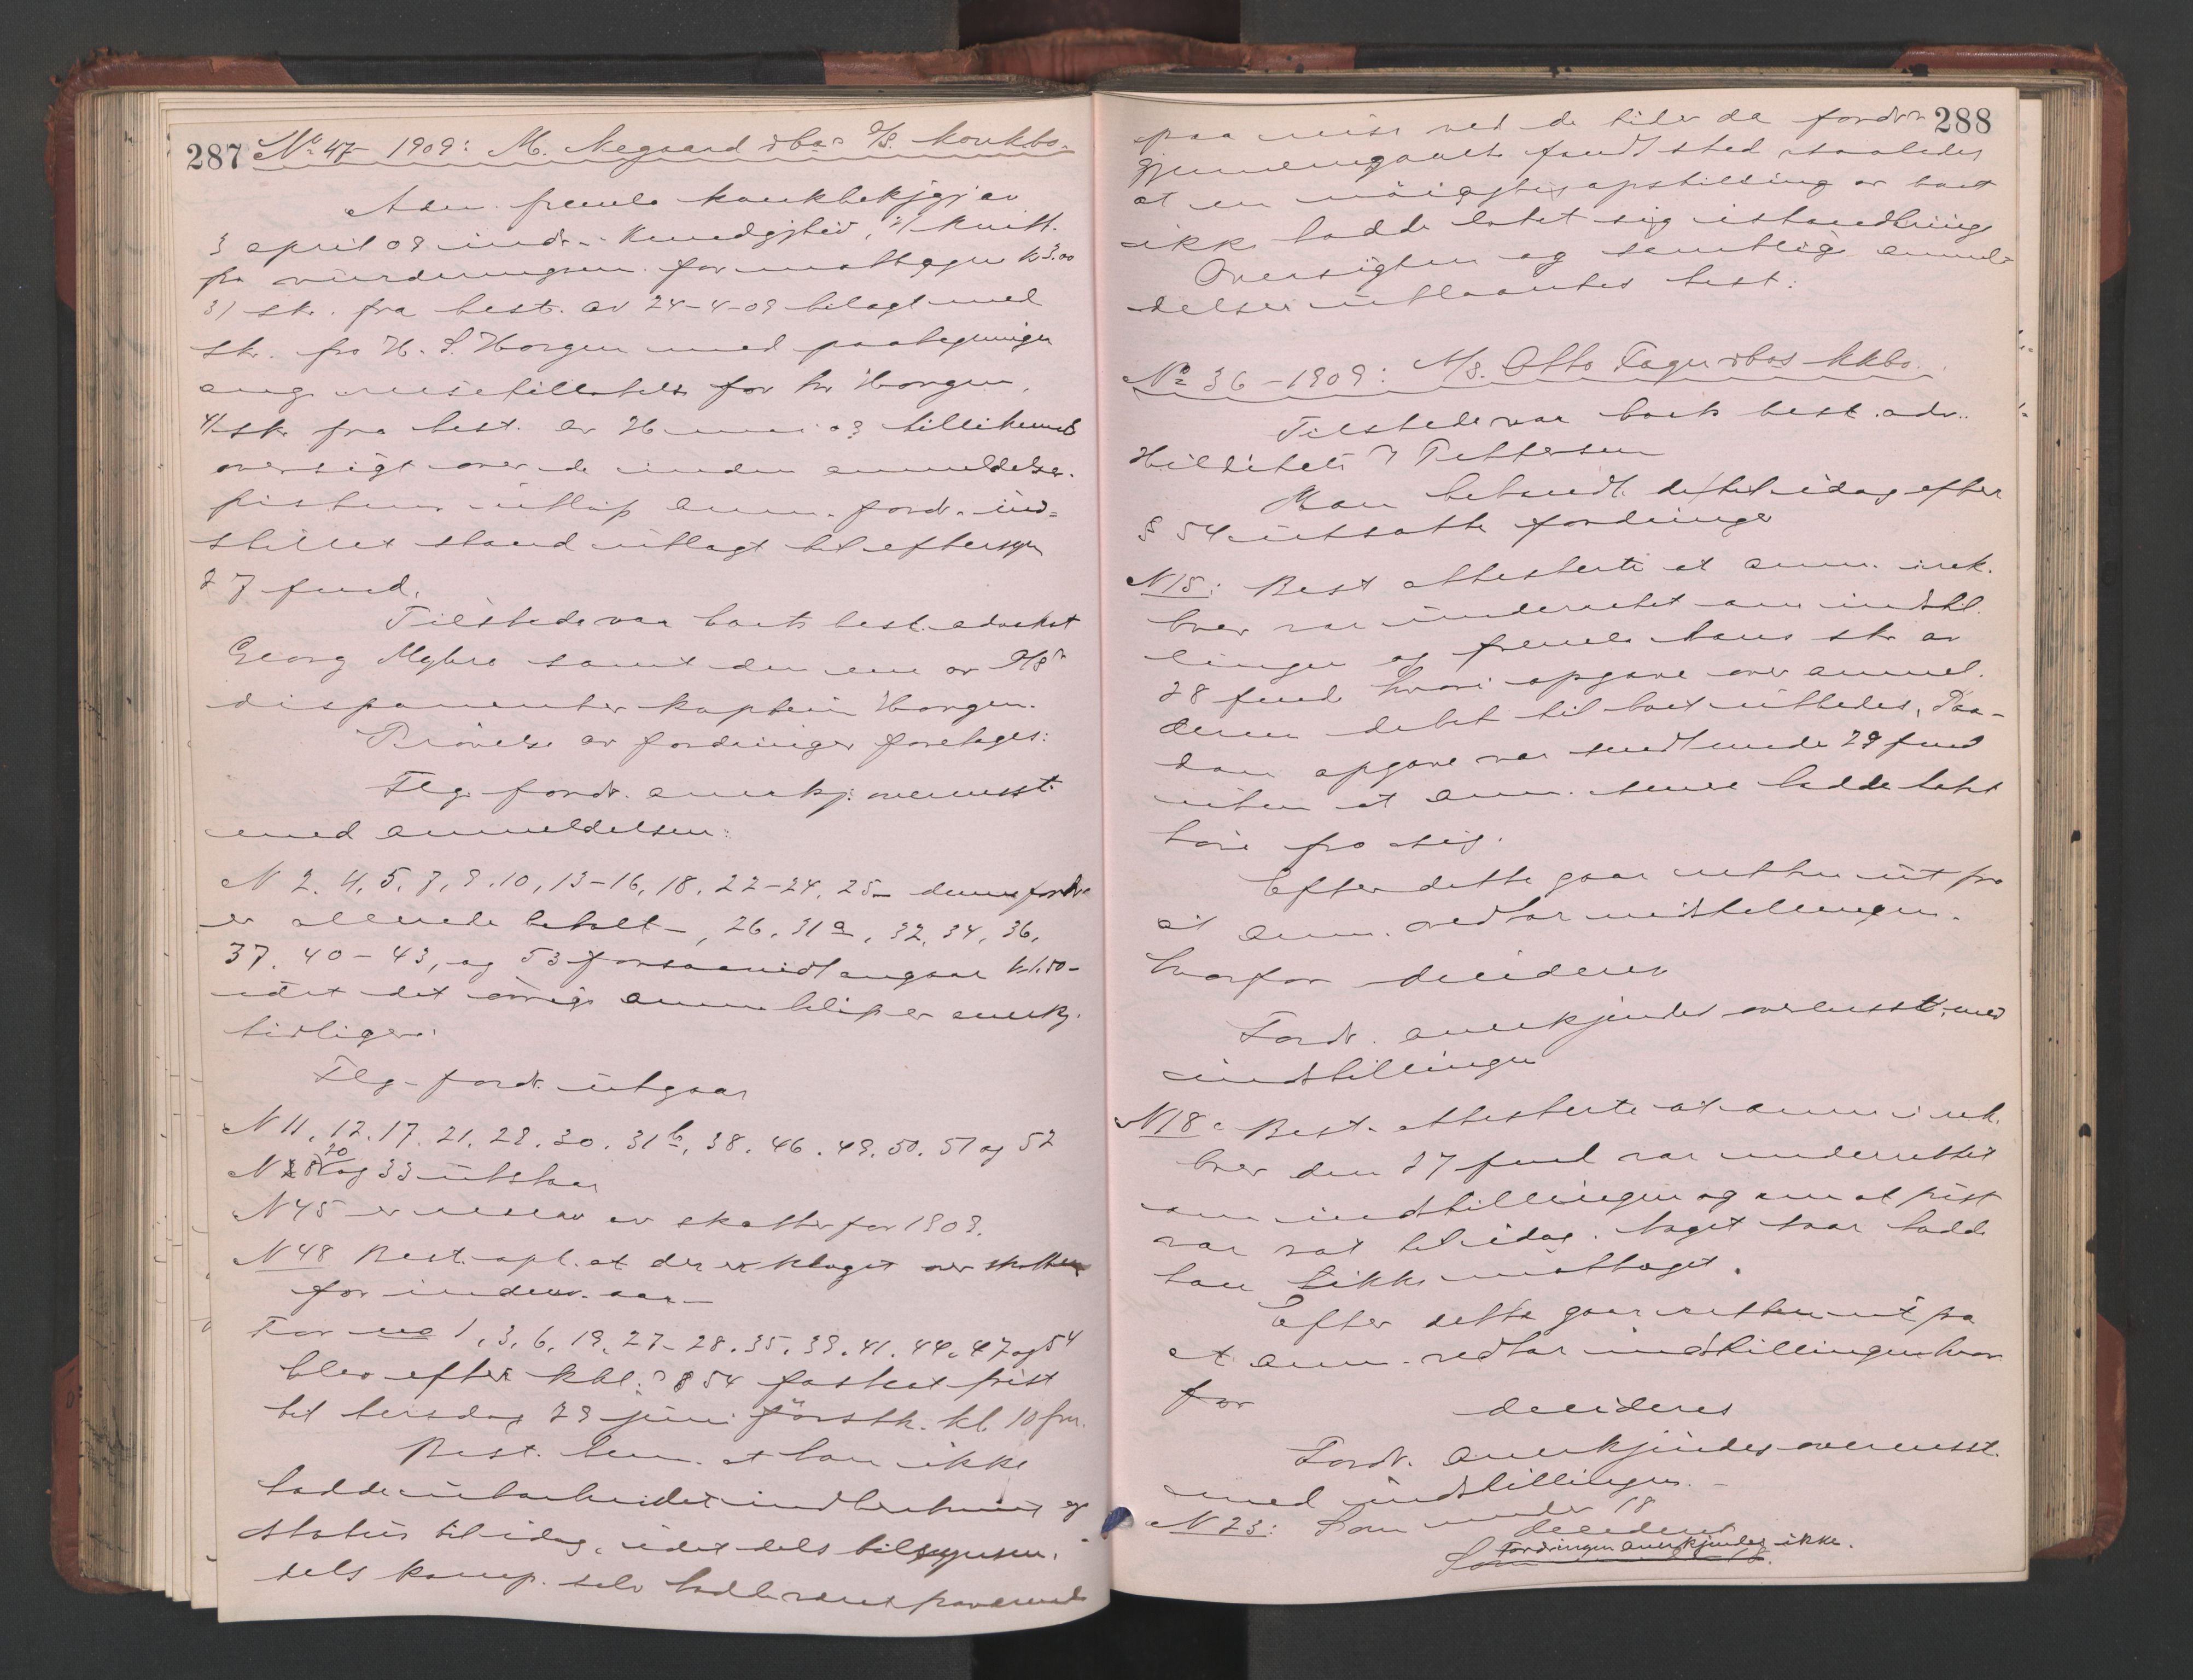 287 No 47 1909: M. Aegaard & bas A/S. konkbo.
Adm. freml. konkbekjgj av
3 april 09 indr. i Kundgjtid, 2/ kvitt.
fra vurderingsm. for mottagne kr 3.00
3/ skr. fra best. av 24-4-09 bilagt med
skr. fra H. S. Horgen med paategninger
ang. reisetillatelse for hr Horgen,
4/ skr fra best. av mai 09 tillikemed
oversigt over de inden anmeldelses-
fristens utløp anm. fordr. ind-
stillet stand utlagt til eftersyn
27 f.md.
Tilstede var boets best. advokat
Georg Myhre samt den ene av A/S's
disponenter kaptein Horgen.
Prøvelse av fordringer foretages:
Flg. fordr. anerkj. overensst.
med anmeldelsen:
N 2. 4, 5, 7, 9. 10, 13-16, 18, 22-24, 25 - denne fordr.
er allerede betalt -, 26, 31 a, 32, 34, 36,
37, 40-43, og 53 forsaavidt angaar kr 1.50 -
idet det øvrige anm. beløp er anerkj.
tidligere.
Flg. fordr. utgaar
N 11, 12. 17. 21. 29. 30. 31 b, 38. 46. 49. 50. 51 og 52
N 8 20 og 33 utstaar
N 45 er av skatter for 1909.
N 48 Best. opl. at der er klaget over skatten
for indev. aar -
For no 1, 3, 6, 19, 27-28. 35. 39. 41. 44. 47 og 54
blev efter kkl.s § 54 fastsat frist
til tirsdag 29 juni førstk. kl. 10 fm.
Best. bem. at han ikke
hadde utarbeidet indberetning og
status til idag, idet dels tilsynsm.
dels komp. selv hadde været fraværende
288
paa reise ved de tider da fordr.
gjennemgaaelse fandt sted saaledes
at en nøiagtig opstilling av boet
ikke hadde latet sig istandbringe
Oversigten og samtlige anmel-
delser utlaantes best:
No 36-1909: A/S. Otto Fagers bos kkbo.
Tilstede var boets best. adv.
Hilditch Pettersen
Man behandl. de til idag efter
§ 54 utsatte fordringer
N 15: Best attesterte at anm. i rek.
brev var underrettet om indstil-
lingen og freml. hans skr av
28 f.md hvori opgave over anmel-
derens debet til boet utbedes, Saa-
dan opgave var sendt med 29 f.md
uten at anm. senere hadde latt
høre fra sig.
Efter dette gaar retten ut fra
at anm. vedtar indstillingen.
hvorfor decideres
Fordr. anerkjendes overensst. med
indstillingen
N 18: Best. attesterte at anm i rek.
brev den 27 f.md var underrettet
om indstillingen og om at frist
var sat til idag. Noget svar hadde
han ikke mottaget.
Efter dette gaar retten ut fra
at anm. vedtar indstillingen hvor
for decideres
Fordr. anerkjendes overensst.
med indstillingen. -
N 23: Som under 18
decideres
Fordringen anerkjendes ikke.